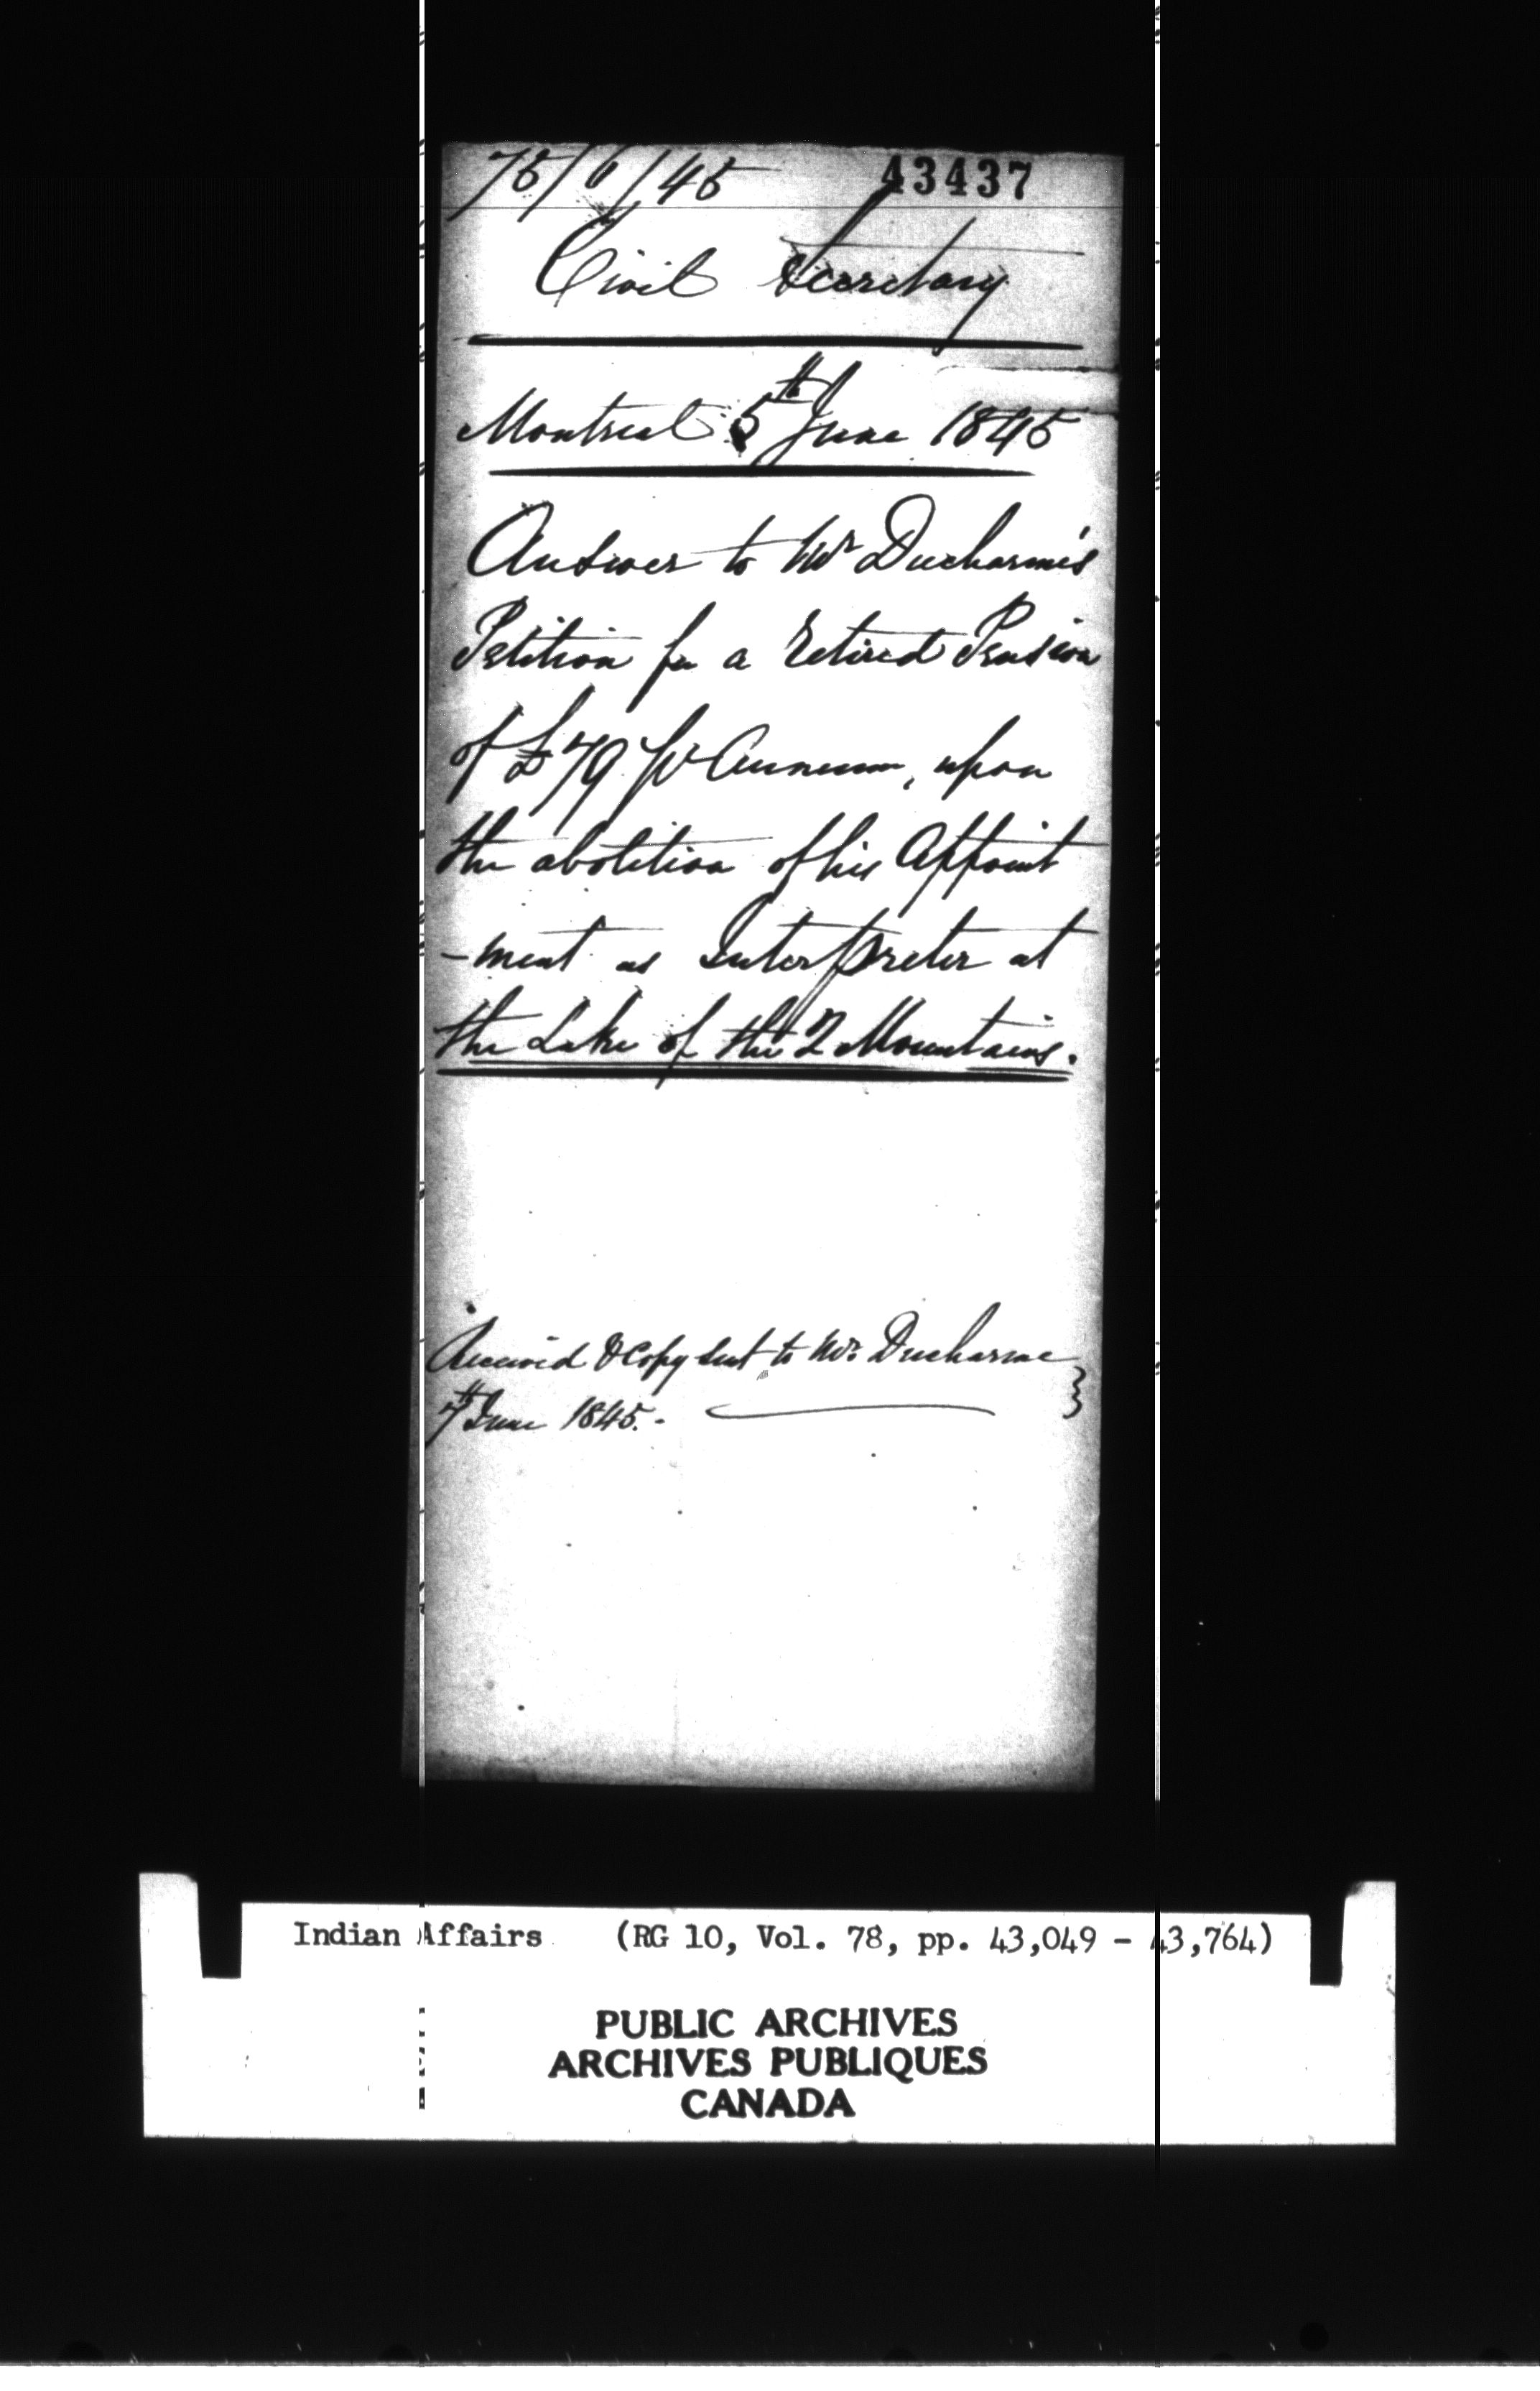 75/6/45 43437
Civil Secretary
Montreal 5th June 1845
Answer to Mr Ducharme's
Petition for a Retired Pension
of £79 pr Annum, upon
the abolition of his Appoint
-ment as Interpreter at
the Lake of the 2 Mountains.
Received & Copy sent to Mr. Ducharme
7th June 1845.-
Indian Affairs (RG 10, Vol. 78, pp. 43,049 - 43,764)
PUBLIC ARCHIVES
ARCHIVES PUBLIQUES
CANADA